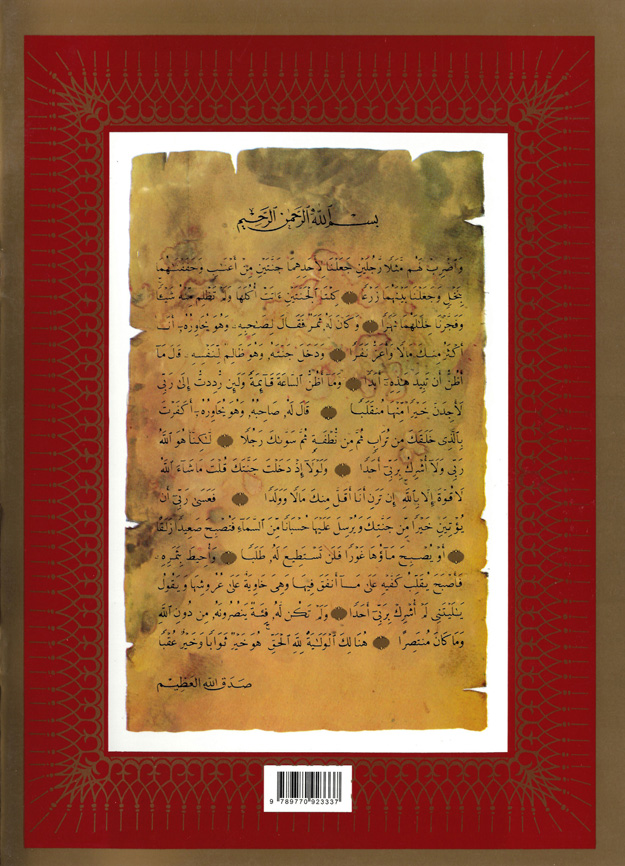 بِسْمِ ٱللَّهِ ٱلرَّحْمَٰنِ ٱلرَّحِيمِ
وَٱضْرِبْ لَهُم مَّثَلًا رَّجُلَيْنِ جَعَلْنَا لِأَحَدِهِمَا جَنَّتَيْنِ مِنْ أَعْنَٰبٍ وَحَفَفْنَٰهُمَا
بِنَخْلٍ وَجَعَلْنَا بَيْنَهُمَا زَرْعًا كِلْتَا ٱلْجَنَّتَيْنِ ءَاتَتْ أُكُلَهَا وَلَمْ تَظْلِم مِّنْهُ شَيْـًٔا
وَفَجَّرْنَا خِلَٰلَهُمَا نَهَرًا وَكَانَ لَهُۥ ثَمَرٌ فَقَالَ لِصَٰحِبِهِۦ وَهُوَ يُحَاوِرُهُۥٓ أَنَا۠
أَكْثَرُ مِنكَ مَالًا وَأَعَزُّ نَفَرًا وَدَخَلَ جَنَّتَهُۥ وَهُوَ ظَالِمٌ لِّنَفْسِهِۦ قَالَ مَآ
أَظُنُّ أَن تَبِيدَ هَٰذِهِۦٓ أَبَدًا وَمَآ أَظُنُّ ٱلسَّاعَةَ قَآئِمَةً وَلَئِن رُّدِدتُّ إِلَىٰ رَبِّى
لَأَجِدَنَّ خَيْرًا مِّنْهَا مُنقَلَبًا قَالَ لَهُۥ صَاحِبُهُۥ وَهُوَ يُحَاوِرُهُۥٓ أَكَفَرْتَ
بِٱلَّذِى خَلَقَكَ مِن تُرَابٍ ثُمَّ مِن نُّطْفَةٍ ثُمَّ سَوَّىٰكَ رَجُلًا لَّٰكِنَّا۠ هُوَ ٱللَّهُ
رَبِّى وَلَآ أُشْرِكُ بِرَبِّىٓ أَحَدًا وَلَوْلَآ إِذْ دَخَلْتَ جَنَّتَكَ قُلْتَ مَا شَآءَ ٱللَّهُ
لَا قُوَّةَ إِلَّا بِٱللَّهِ إِن تَرَنِ أَنَا۠ أَقَلَّ مِنكَ مَالًا وَوَلَدًا فَعَسَىٰ رَبِّىٓ أَن
يُؤْتِيَنِ خَيْرًا مِّن جَنَّتِكَ وَيُرْسِلَ عَلَيْهَا حُسْبَانًا مِّنَ ٱلسَّمَآءِ فَتُصْبِحَ صَعِيدًا زَلَقًا
أَوْ يُصْبِحَ مَآؤُهَا غَوْرًا فَلَن تَسْتَطِيعَ لَهُۥ طَلَبًا وَأُحِيطَ بِثَمَرِهِۦ
فَأَصْبَحَ يُقَلِّبُ كَفَّيْهِ عَلَىٰ مَآ أَنفَقَ فِيهَا وَهِىَ خَاوِيَةٌ عَلَىٰ عُرُوشِهَا وَيَقُولُ
يَٰلَيْتَنِى لَمْ أُشْرِكْ بِرَبِّىٓ أَحَدًا وَلَمْ تَكُن لَّهُۥ فِئَةٌ يَنصُرُونَهُۥ مِن دُونِ ٱللَّهِ
وَمَا كَانَ مُنتَصِرًا هُنَالِكَ ٱلْوَلَٰيَةُ لِلَّهِ ٱلْحَقِّ هُوَ خَيْرٌ ثَوَابًا وَخَيْرٌ عُقْبًا
صَدَقَ اللهُ العَظِيم
9 789770 923337